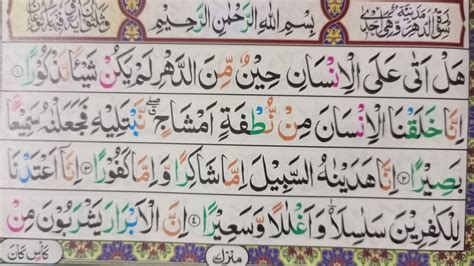 سورة الدهر مدنية وهي احدى
بِسْمِ اللهِ الرَّحْمٰنِ الرَّحِيْمِ
هَلْ اَتٰى عَلَى الْاِنْسَانِ حِيْنٌ مِّنَ الدَّهْرِ لَمْ يَكُنْ شَيْـًٔا مَّذْكُوْرًا ۝۱
اِنَّا خَلَقْنَا الْاِنْسَانَ مِنْ نُّطْفَةٍ اَمْشَاجٍ ۖ نَّبْتَلِيْهِ فَجَعَلْنٰهُ سَمِيْعًۢا
بَصِيْرًا ۝۲ اِنَّا هَدَيْنٰهُ السَّبِيْلَ اِمَّا شَاكِرًا وَّ اِمَّا كَفُوْرًا ۝۳ اِنَّاۤ اَعْتَدْنَا
لِلْكٰفِرِيْنَ سَلٰسِلَا۠ وَ اَغْلٰلًا وَّ سَعِيْرًا ۝۴ اِنَّ الْاَبْرَارَ يَشْرَبُوْنَ مِنْ
منزل
كَاْسٍ كَانَ